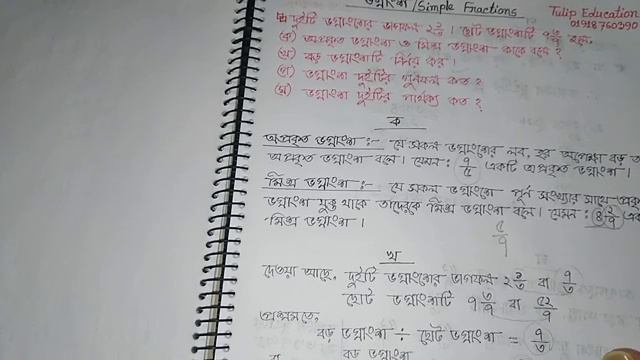 ভগ্নাংশ/Simple Fractions
Tulip Education
01918760390
দুইটি ভগ্নাংশের ভাগফল ২ ১/৩ । ছোট ভগ্নাংশটি ৭ ৩/৭ হলে,
(ক) অপ্রকৃত ভগ্নাংশ ও মিশ্র ভগ্নাংশ কাকে বলে ?
(খ) বড় ভগ্নাংশটি নির্ণয় কর ।
(গ) ভগ্নাংশ দুইটির গুণফল কত ?
(ঘ) ভগ্নাংশ দুইটির পার্থক্য কত ?
ক
অপ্রকৃত ভগ্নাংশ :- যে সকল ভগ্নাংশের লব, হর অপেক্ষা বড় ত
অপ্রকৃত ভগ্নাংশ বলে । যেমন : ৭/৫ একটি অপ্রকৃত ভগ্নাংশ ।
মিশ্র ভগ্নাংশ :- যে সকল ভগ্নাংশে পূর্ন সংখ্যার সাথে প্রকৃ
ভগ্নাংশ যুক্ত থাকে তাদেরকে মিশ্র ভগ্নাংশ বলে । যেমন : ৪ ২/৭ এক
মিশ্র ভগ্নাংশ ।
৫/৭
খ
দেওয়া আছে, দুইটি ভগ্নাংশের ভাগফল ২ ১/৩ বা ৭/৩
ছোট ভগ্নাংশটি ৭ ৩/৭ বা ৫২/৭
প্রশ্নমতে,
বড় ভগ্নাংশ ÷ ছোট ভগ্নাংশ = ৭/৩
বা বড় ভগ্নাংশ